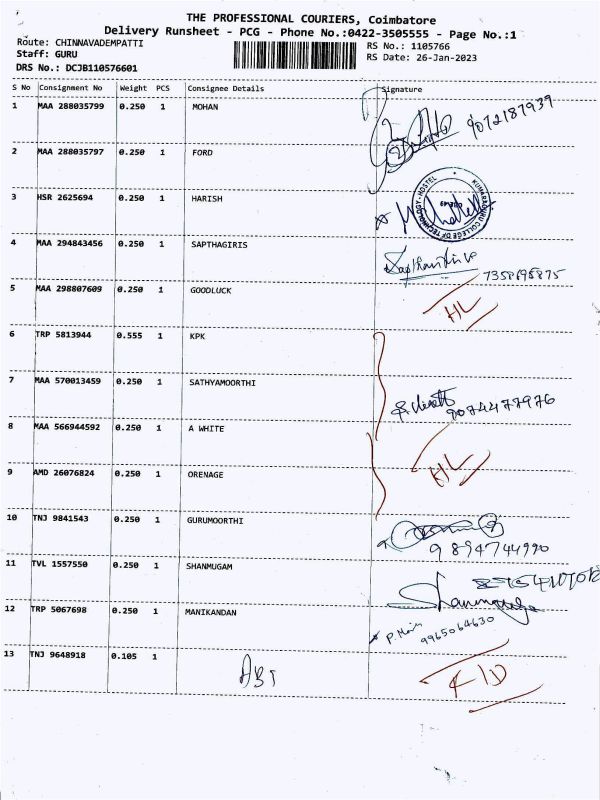 THE PROFESSIONAL COURIERS, Coimbatore
Delivery Runsheet - PCG - Phone No.:0422-3505555 - Page No.:1
Route: CHINNAVADEMPATTI RS No.: 1105766
Staff: GURU RS Date: 26-Jan-2023
DRS No.: DCJB110576601
S No Consignment No Weight PCS Consignee Details Signature
1 MAA 288035799 0.250 1 MOHAN 9072187939
2 MAA 288035797 0.250 1 FORD
3 HSR 2625694 0.250 1 HARISH
KUMARAGURU COLLEGE OF TECHNOLOGY-HOSTEL
4 MAA 294843456 0.250 1 SAPTHAGIRIS
7358695875
5 MAA 298807609 0.250 1 GOODLUCK HL
6 TRP 5813944 0.555 1 KPK
7 MAA 570013459 0.250 1 SATHYAMOORTHI
9074477976
8 MAA 566944592 0.250 1 A WHITE
9 AMD 26076824 0.250 1 ORENAGE HL
10 TNJ 9841543 0.250 1 GURUMOORTHI
9894744990
11 TVL 1557550 0.250 1 SHANMUGAM
12 TRP 5067698 0.250 1 MANIKANDAN P. Mani
9965064630
13 TNJ 9648918 0.105 1 ABT F/D